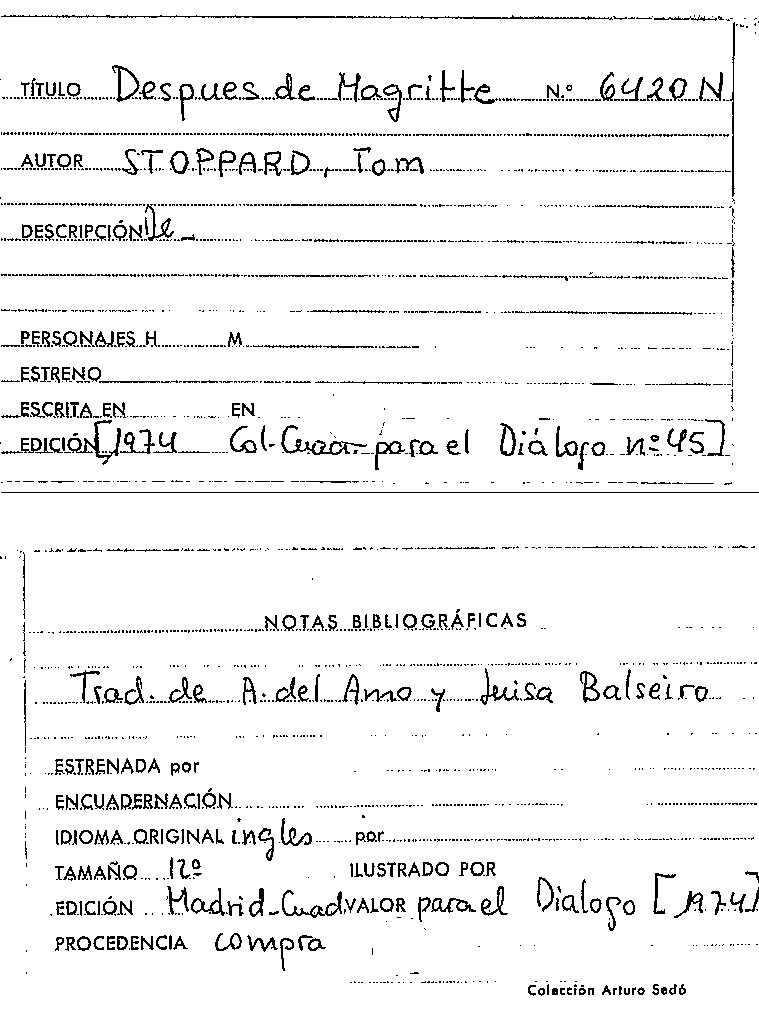 TÍTULO Despues de Magritte N.º 6420 N
AUTOR STOPPARD, Tom
DESCRIPCIÓN De
PERSONAJES H M
ESTRENO
ESCRITA EN EN
EDICIÓN [1974 Col. Cuad. para el Diálogo nº 45]
NOTAS BIBLIOGRÁFICAS
Trad. de A. del Amo y Luisa Balseiro
ESTRENADA por
ENCUADERNACIÓN
IDIOMA ORIGINAL ingles por
TAMAÑO 12º ILUSTRADO POR
EDICIÓN Madrid-Cuad VALOR para el Dialogo [1974]
PROCEDENCIA compra
Colección Arturo Sedó